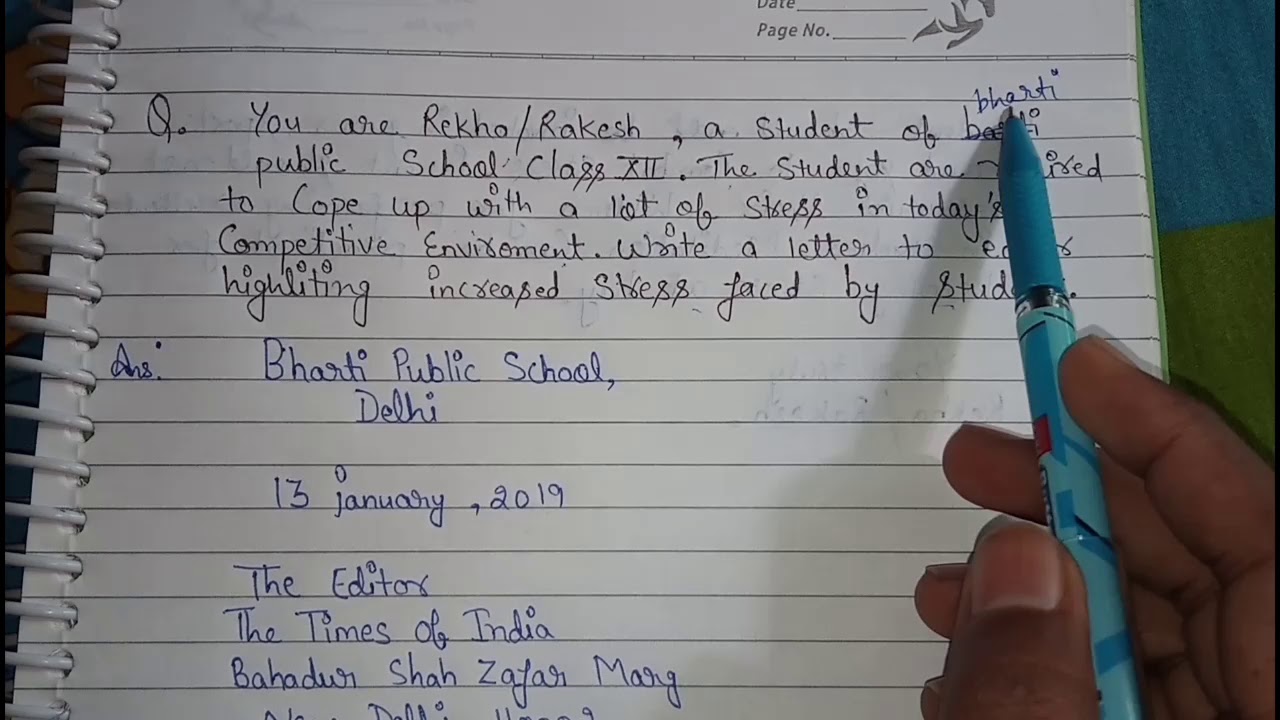 Date
Page No.
bharti
Q. You are Rekha/Rakesh, a Student of
public School Class XII. The Student are
to Cope up with a lot of Stress in today's
Competitive Enviroment. Write a letter to
highliting increased Stress faced by
Ans: Bharti Public School,
Delhi
13 january, 2019
The Editor
The Times of India
Bahadur Shah Zafar Marg